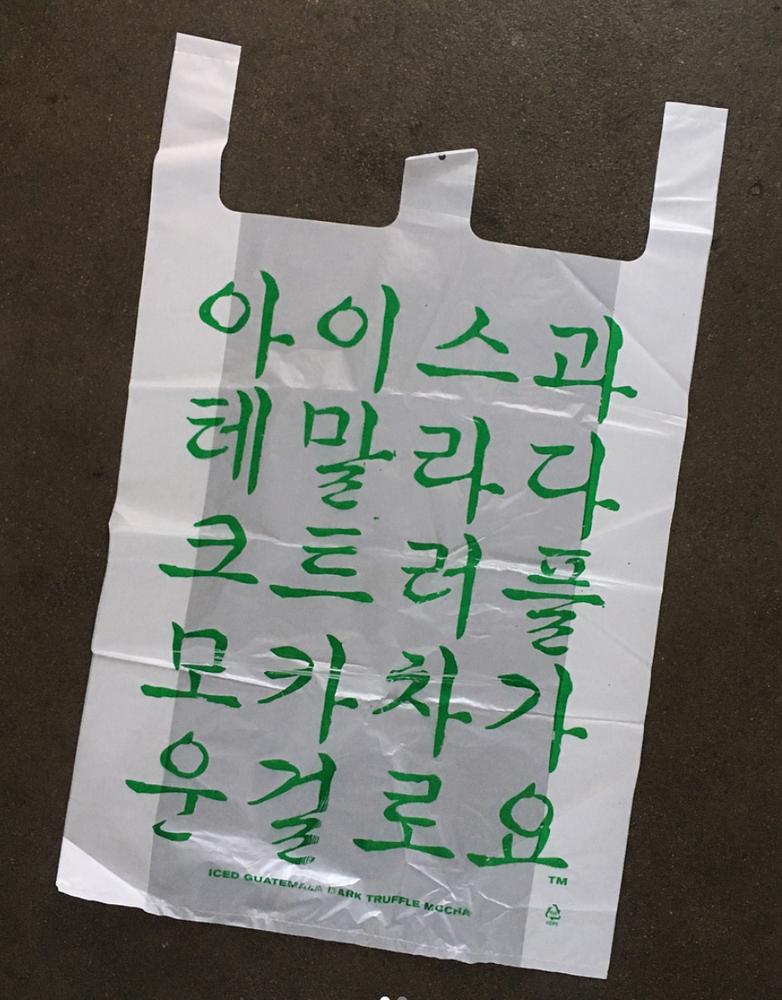 아이스과
테말라다
크트러플
모카차가
운걸로요
TM
ICED GUATEMALA DARK TRUFFLE MOCHA
HDPE